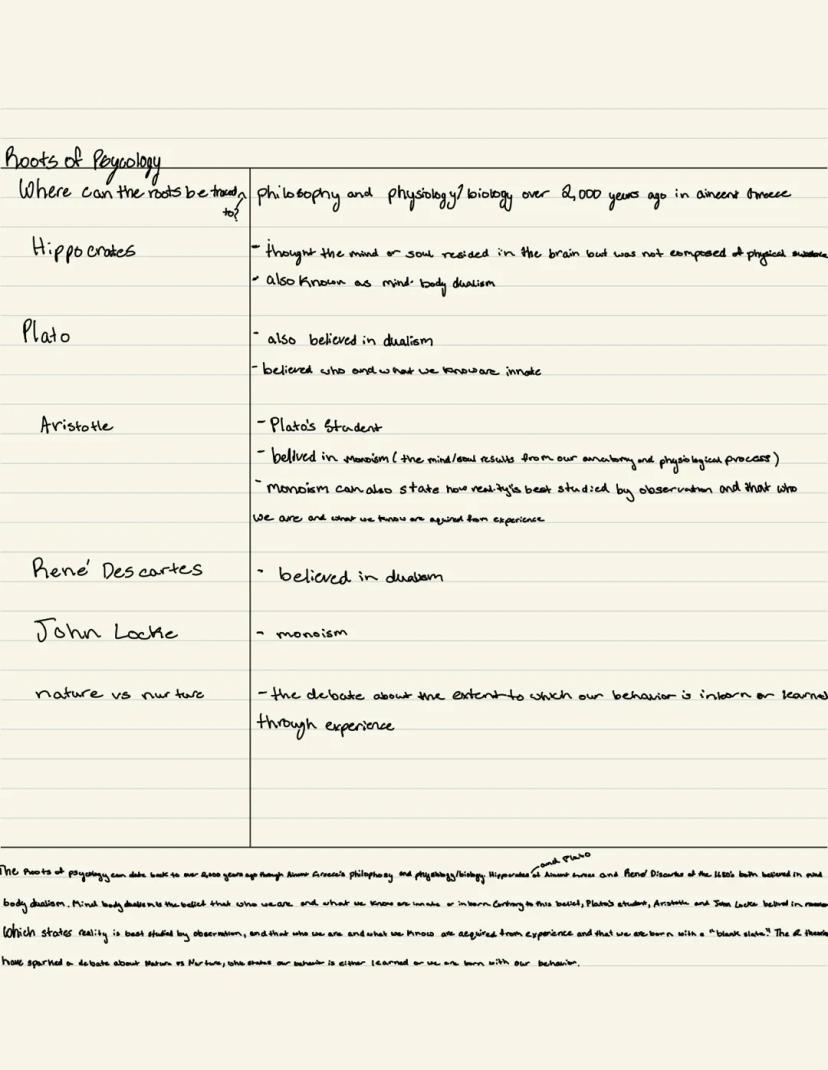 Roots of Psycology
Where can the roots be traced to?
philosophy and physiology/biology over 2,000 years ago in aincent Greece
Hippocrates
- thought the mind or soul resided in the brain but was not composed of physical
- also known as mind-body dualism
Plato
- also believed in dualism
- believed who and what we know are innate
Aristotle
- Plato's Student
- belived in monoism (the mind/soul results from our anatomy and physiological process)
- monoism can also state how reality is best studied by observation and that who
we are and what we know are aquired from experience
René Descartes
- believed in dualism
John Locke
- monoism
nature vs nurture
- the debate about the extent to which our behavior is inborn or learned
through experience
and Plato
The Roots of psycology can date back to over 2,000 years ago through Greece's philosophy and physiology/biology. Hippocrates of and René Discartes of the both believed in mind
body dualism. Mind body dualism is the belief that who we are and what we know are innate or inborn. Contrary to this belief, Plato's student, Aristotle and John Locke belived in
which states reality is best studied by observation, and that who we are and what we know are acquired from experience and that we are born with a "blank slate." The 2
have sparked a debate about Nature vs Nurture, who states our behavior is either learned or we are born with our behavior.